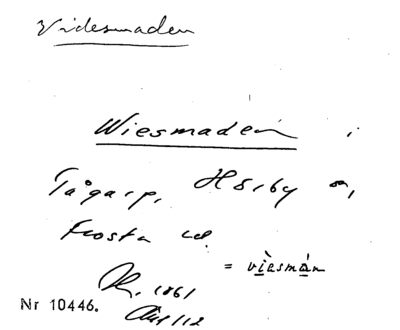 Videsmaden
Wiesmaden i
Tågarp, Hörby sn,
Frosta hd.
= vìesmán
1861
Nr 10446.